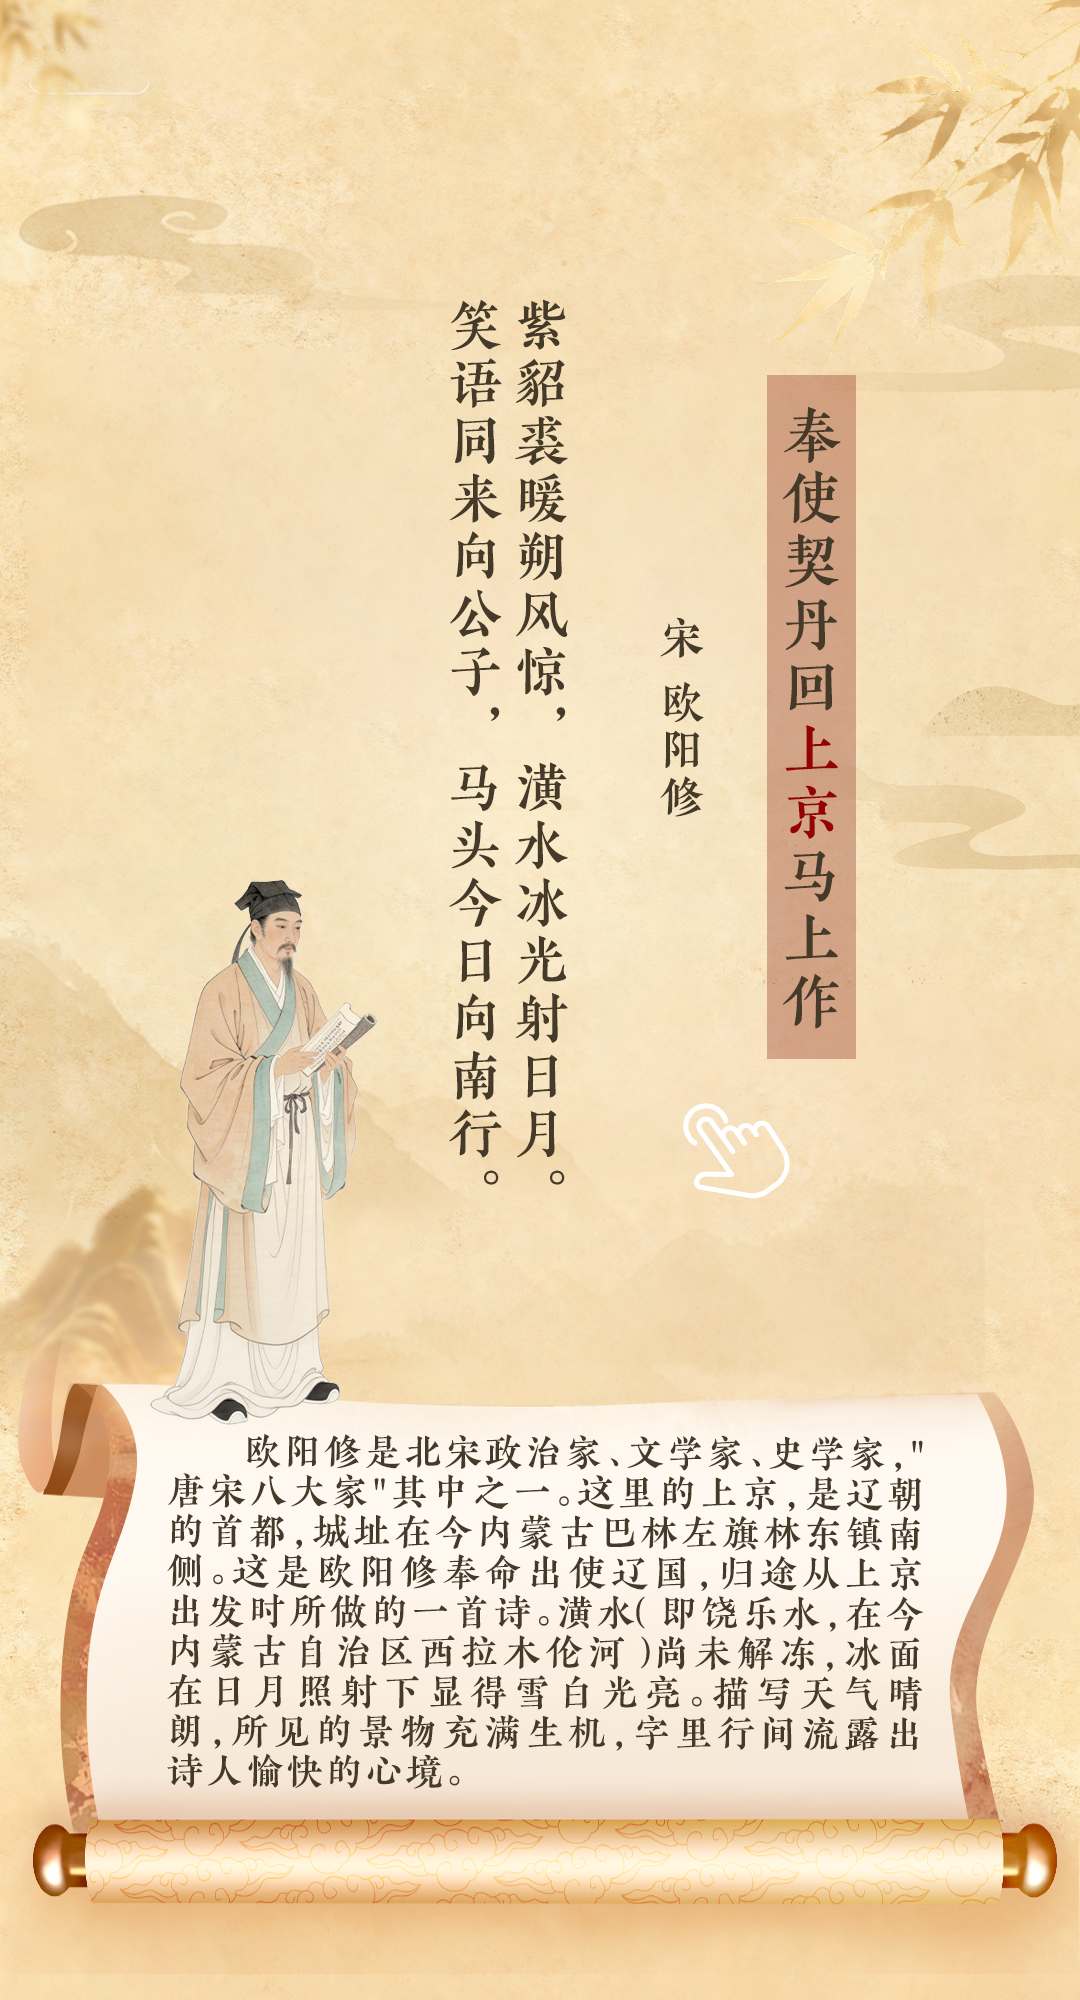 奉使契丹回上京马上作
宋 欧阳修
紫貂裘暖朔风惊，潢水冰光射日月。
笑语同来向公子，马头今日向南行。
欧阳修是北宋政治家、文学家、史学家，"
唐宋八大家"其中之一。这里的上京，是辽朝
的首都，城址在今内蒙古巴林左旗林东镇南
侧。这是欧阳修奉命出使辽国，归途从上京
出发时所做的一首诗。潢水（即饶乐水，在今
内蒙古自治区西拉木伦河）尚未解冻，冰面
在日月照射下显得雪白光亮。描写天气晴
朗，所见的景物充满生机，字里行间流露出
诗人愉快的心境。